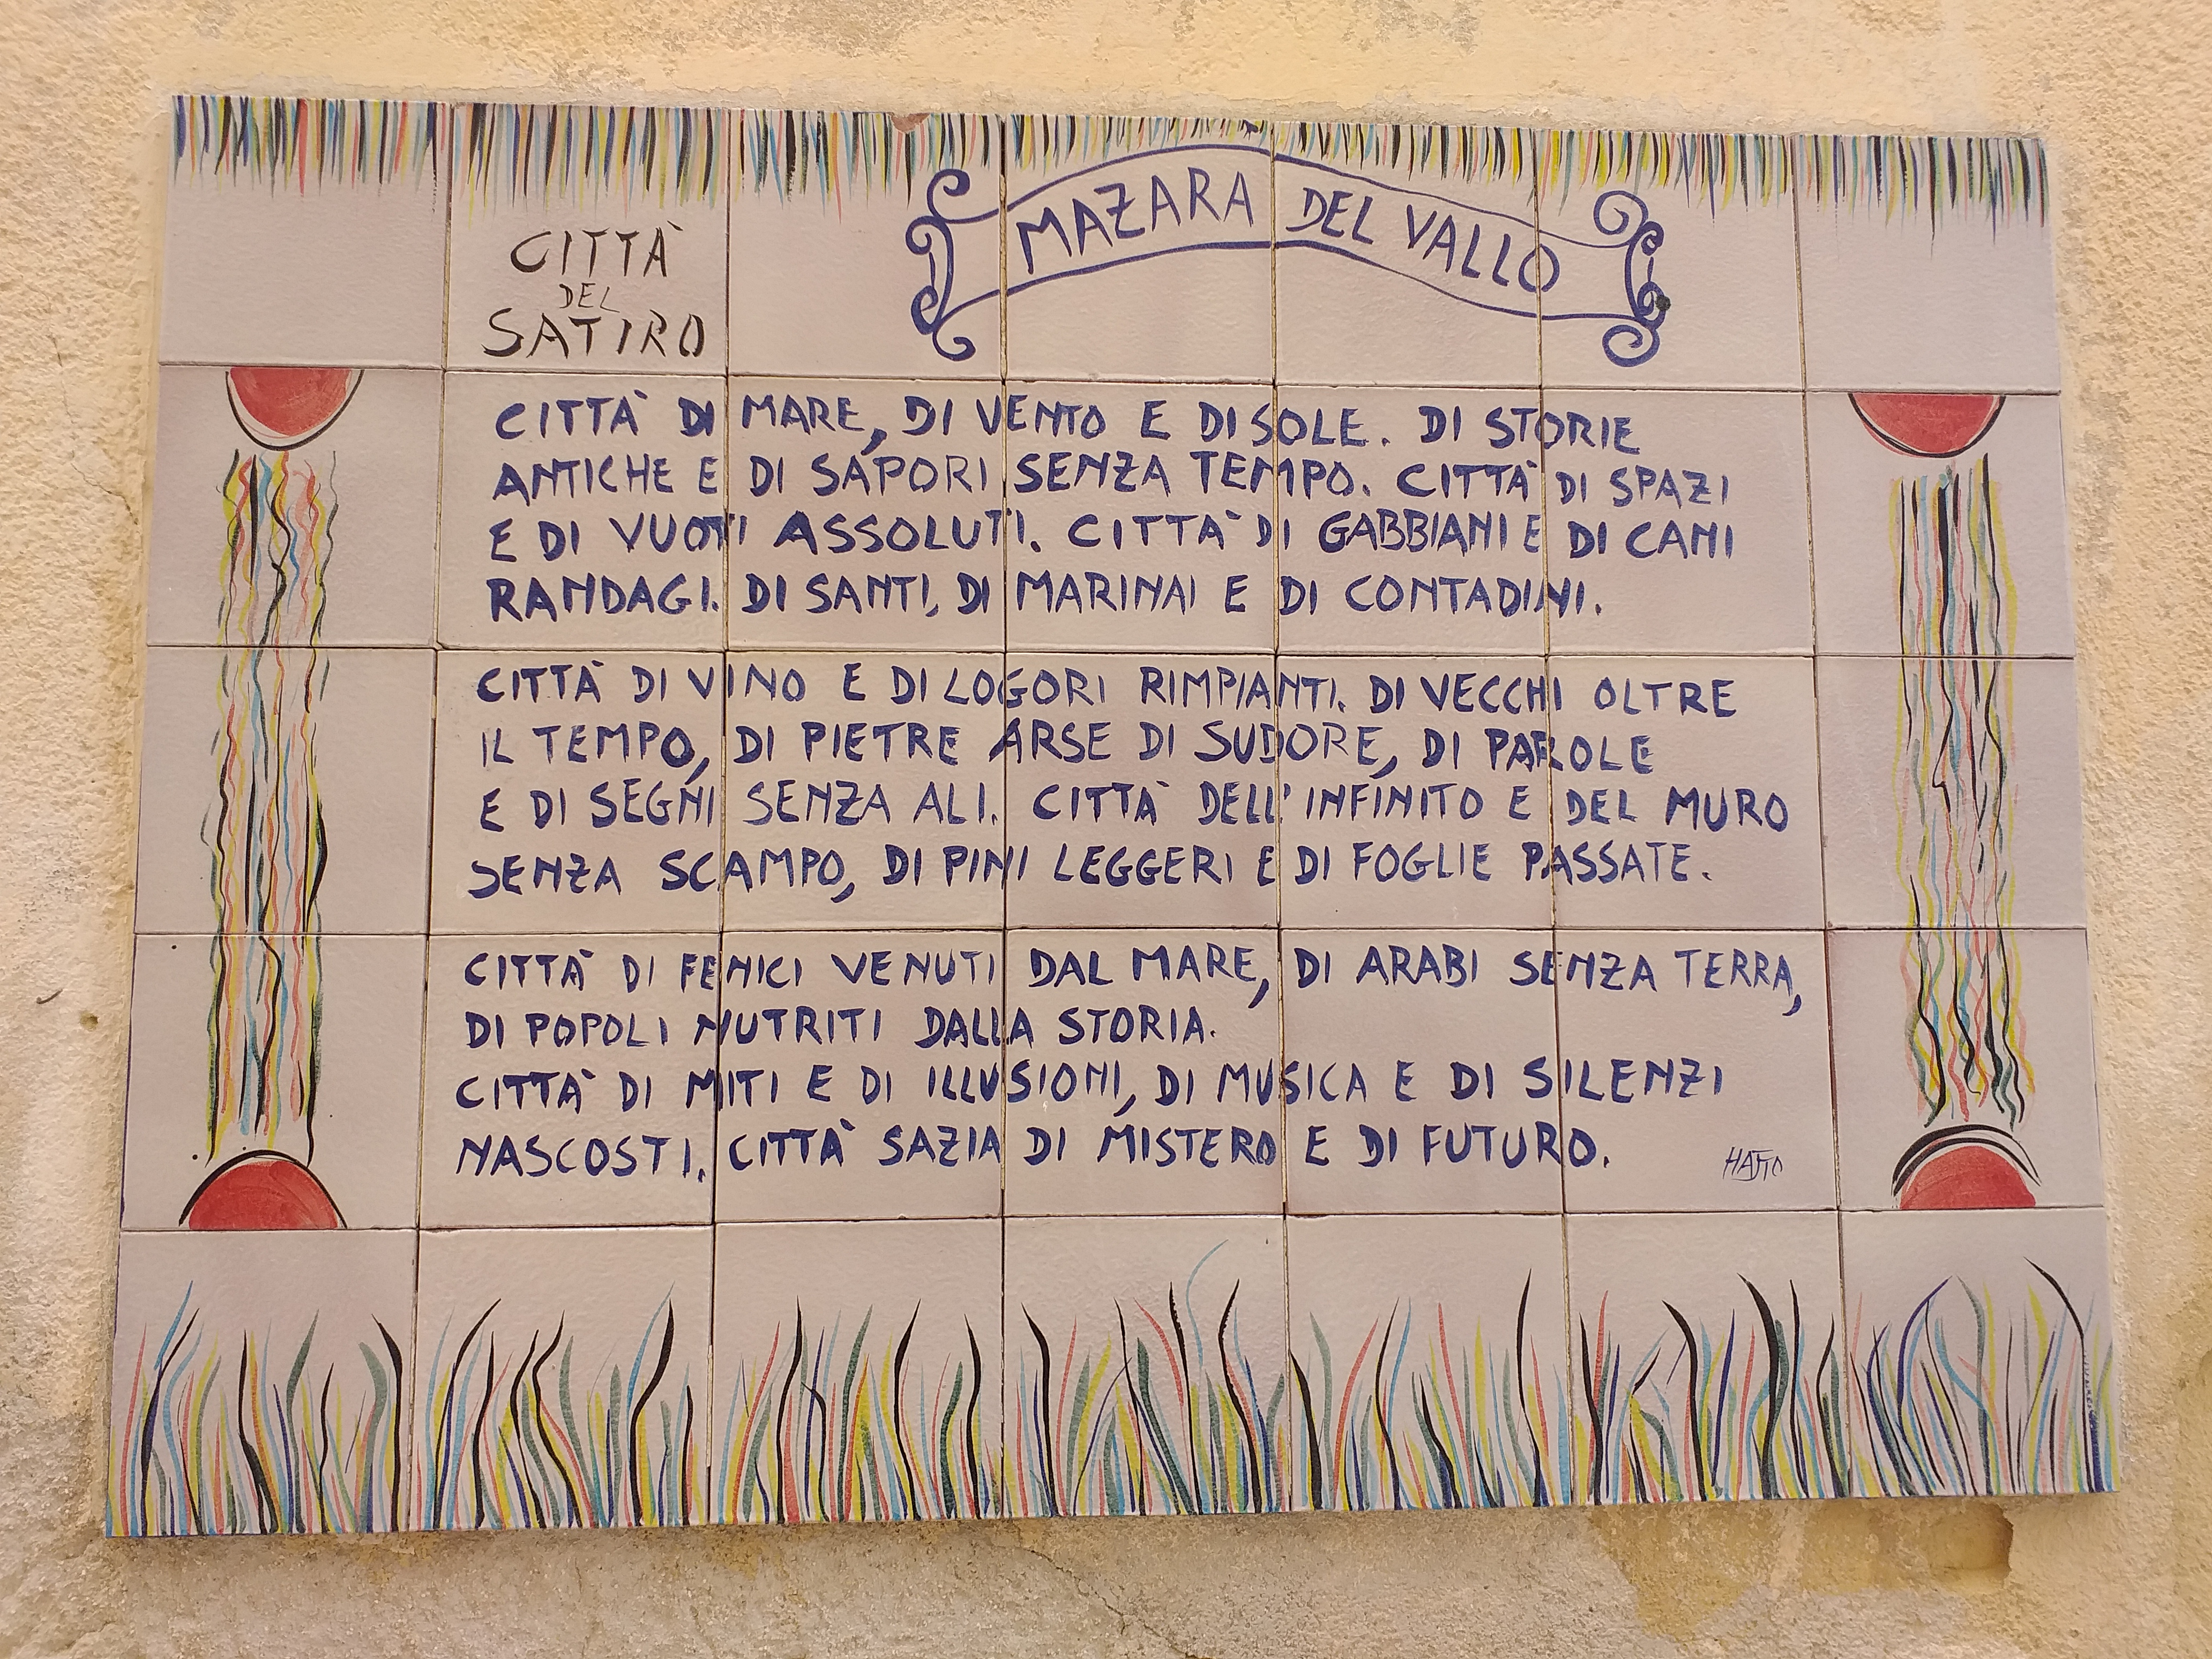 CITTÀ
DEL
SATIRO
MAZARA DEL VALLO
CITTÀ DI MARE, DI VENTO E DI SOLE. DI STORIE
ANTICHE E DI SAPORI SENZA TEMPO. CITTÀ DI SPAZI
E DI VUOTI ASSOLUTI. CITTÀ DI GABBIANI E DI CANI
RANDAGI. DI SANTI, DI MARINAI E DI CONTADINI.
CITTÀ DI VINO E DI LOGORI RIMPIANTI. DI VECCHI OLTRE
IL TEMPO, DI PIETRE ARSE DI SUDORE, DI PAROLE
E DI SEGNI SENZA ALI. CITTÀ DELL'INFINITO E DEL MURO
SENZA SCAMPO, DI PINI LEGGERI E DI FOGLIE PASSATE.
CITTÀ DI FENICI VENUTI DAL MARE, DI ARABI SENZA TERRA,
DI POPOLI NUTRITI DALLA STORIA.
CITTÀ DI MITI E DI ILLUSIONI, DI MUSICA E DI SILENZI
NASCOSTI. CITTÀ SAZIA DI MISTERO E DI FUTURO.